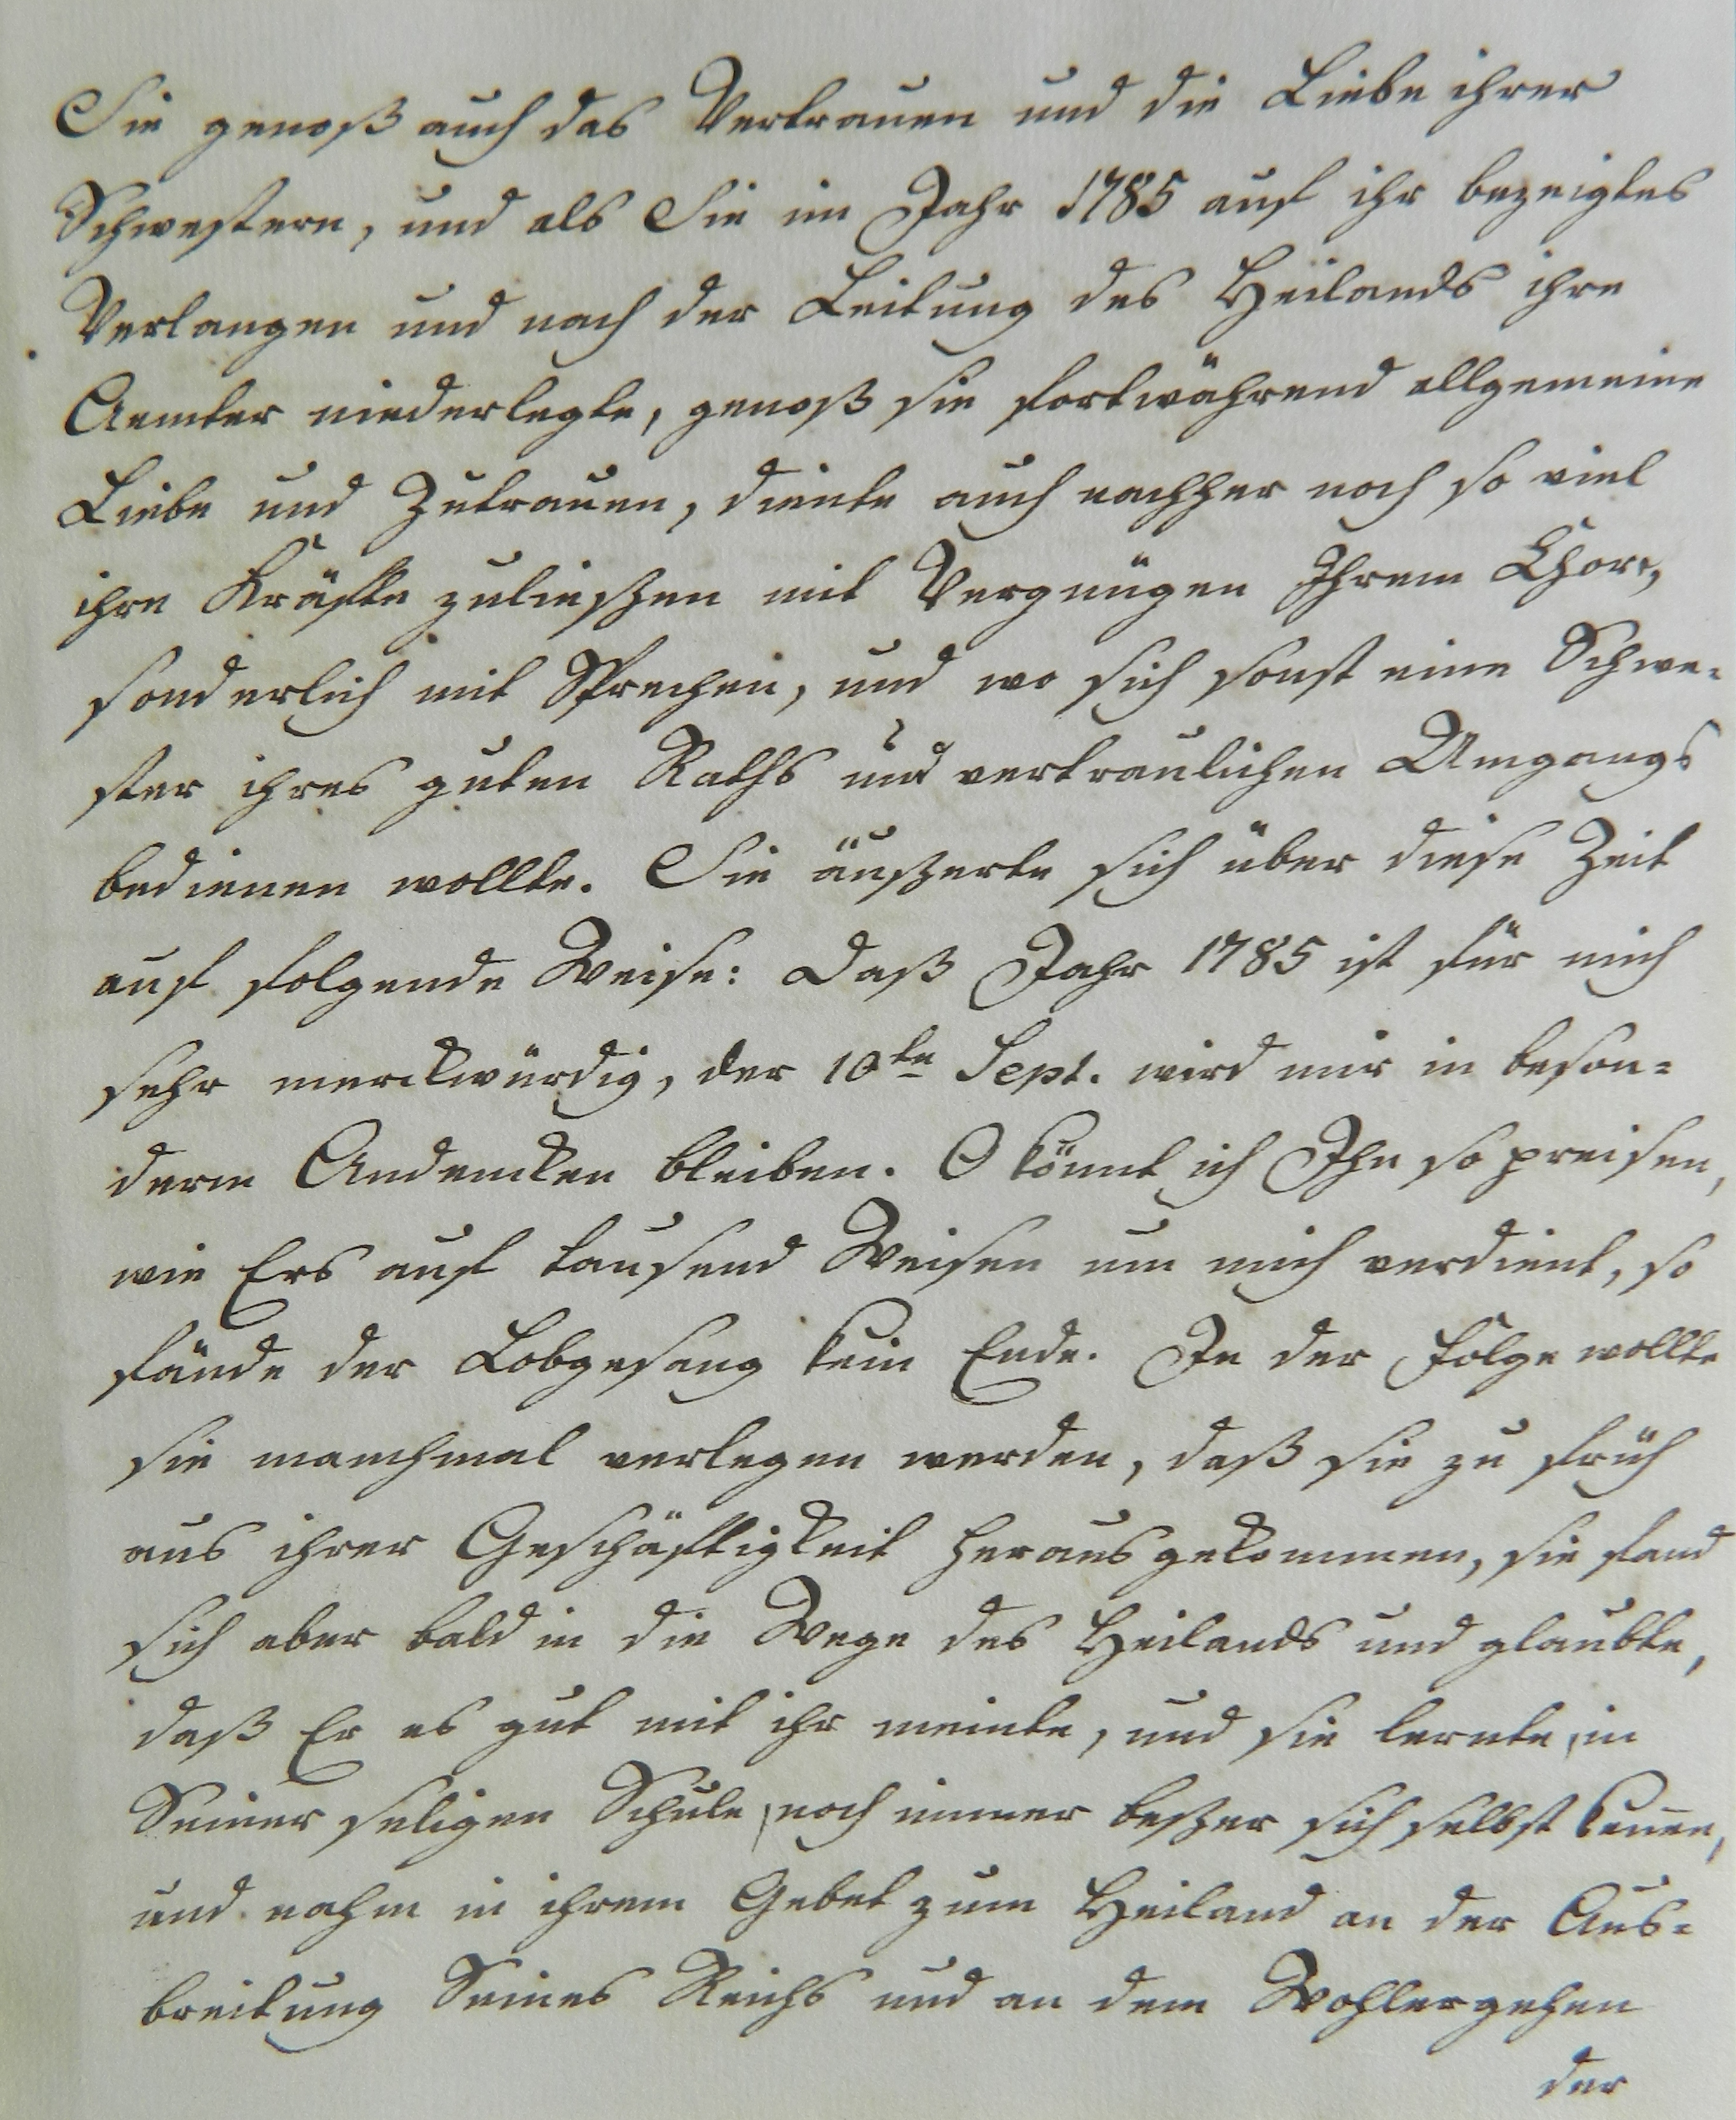 Sie genoß auch das Vertrauen und die Liebe ihrer
Schwestern, und als Sie im Jahr 1785 auf ihr bezeigtes
Verlangen und nach der Leitung des Heilands ihre
Aemter niederlegte, genoß sie fortwährend allgemeine
Liebe und Zutrauen, diente auch nachher noch so viel
ihre Kräfte zuließen mit Vergnügen Ihrem Chore,
sonderlich mit Sprechen, und wo sich sonst eine Schwe-
ster ihres guten Raths und vertraulichen Umgangs
bedienen wollte. Sie äußerte sich über diese Zeit
auf folgende Weise: Daß Jahr 1785 ist für mich
sehr merckwürdig, der 10te Sept. wird mir in beson-
derm Andencken bleiben. O könnt ich Ihn so preisen,
wie Ers auf tausend Weisen um mich verdient, so
fände der Lobgesang kein Ende. In der Folge wollte
sie manchmal verlegen werden, daß sie zu früh
aus ihrer Geschäftigkeit herausgekommen, sie fand
sich aber bald in die Wege des Heilands und glaubte,
daß Er es gut mit ihr meinte, und sie lernte in
Seiner seligen Schule noch immer beßer sich selbst kennen,
und nahm in ihrem Gebet zum Heiland an der Aus-
breitung Seines Reichs und an dem Wohlergehen
der